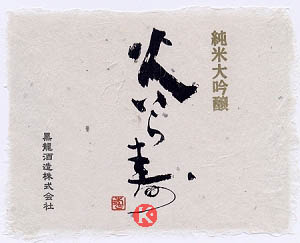 純米大吟醸
火いら寿
黒龍酒造株式会社
K